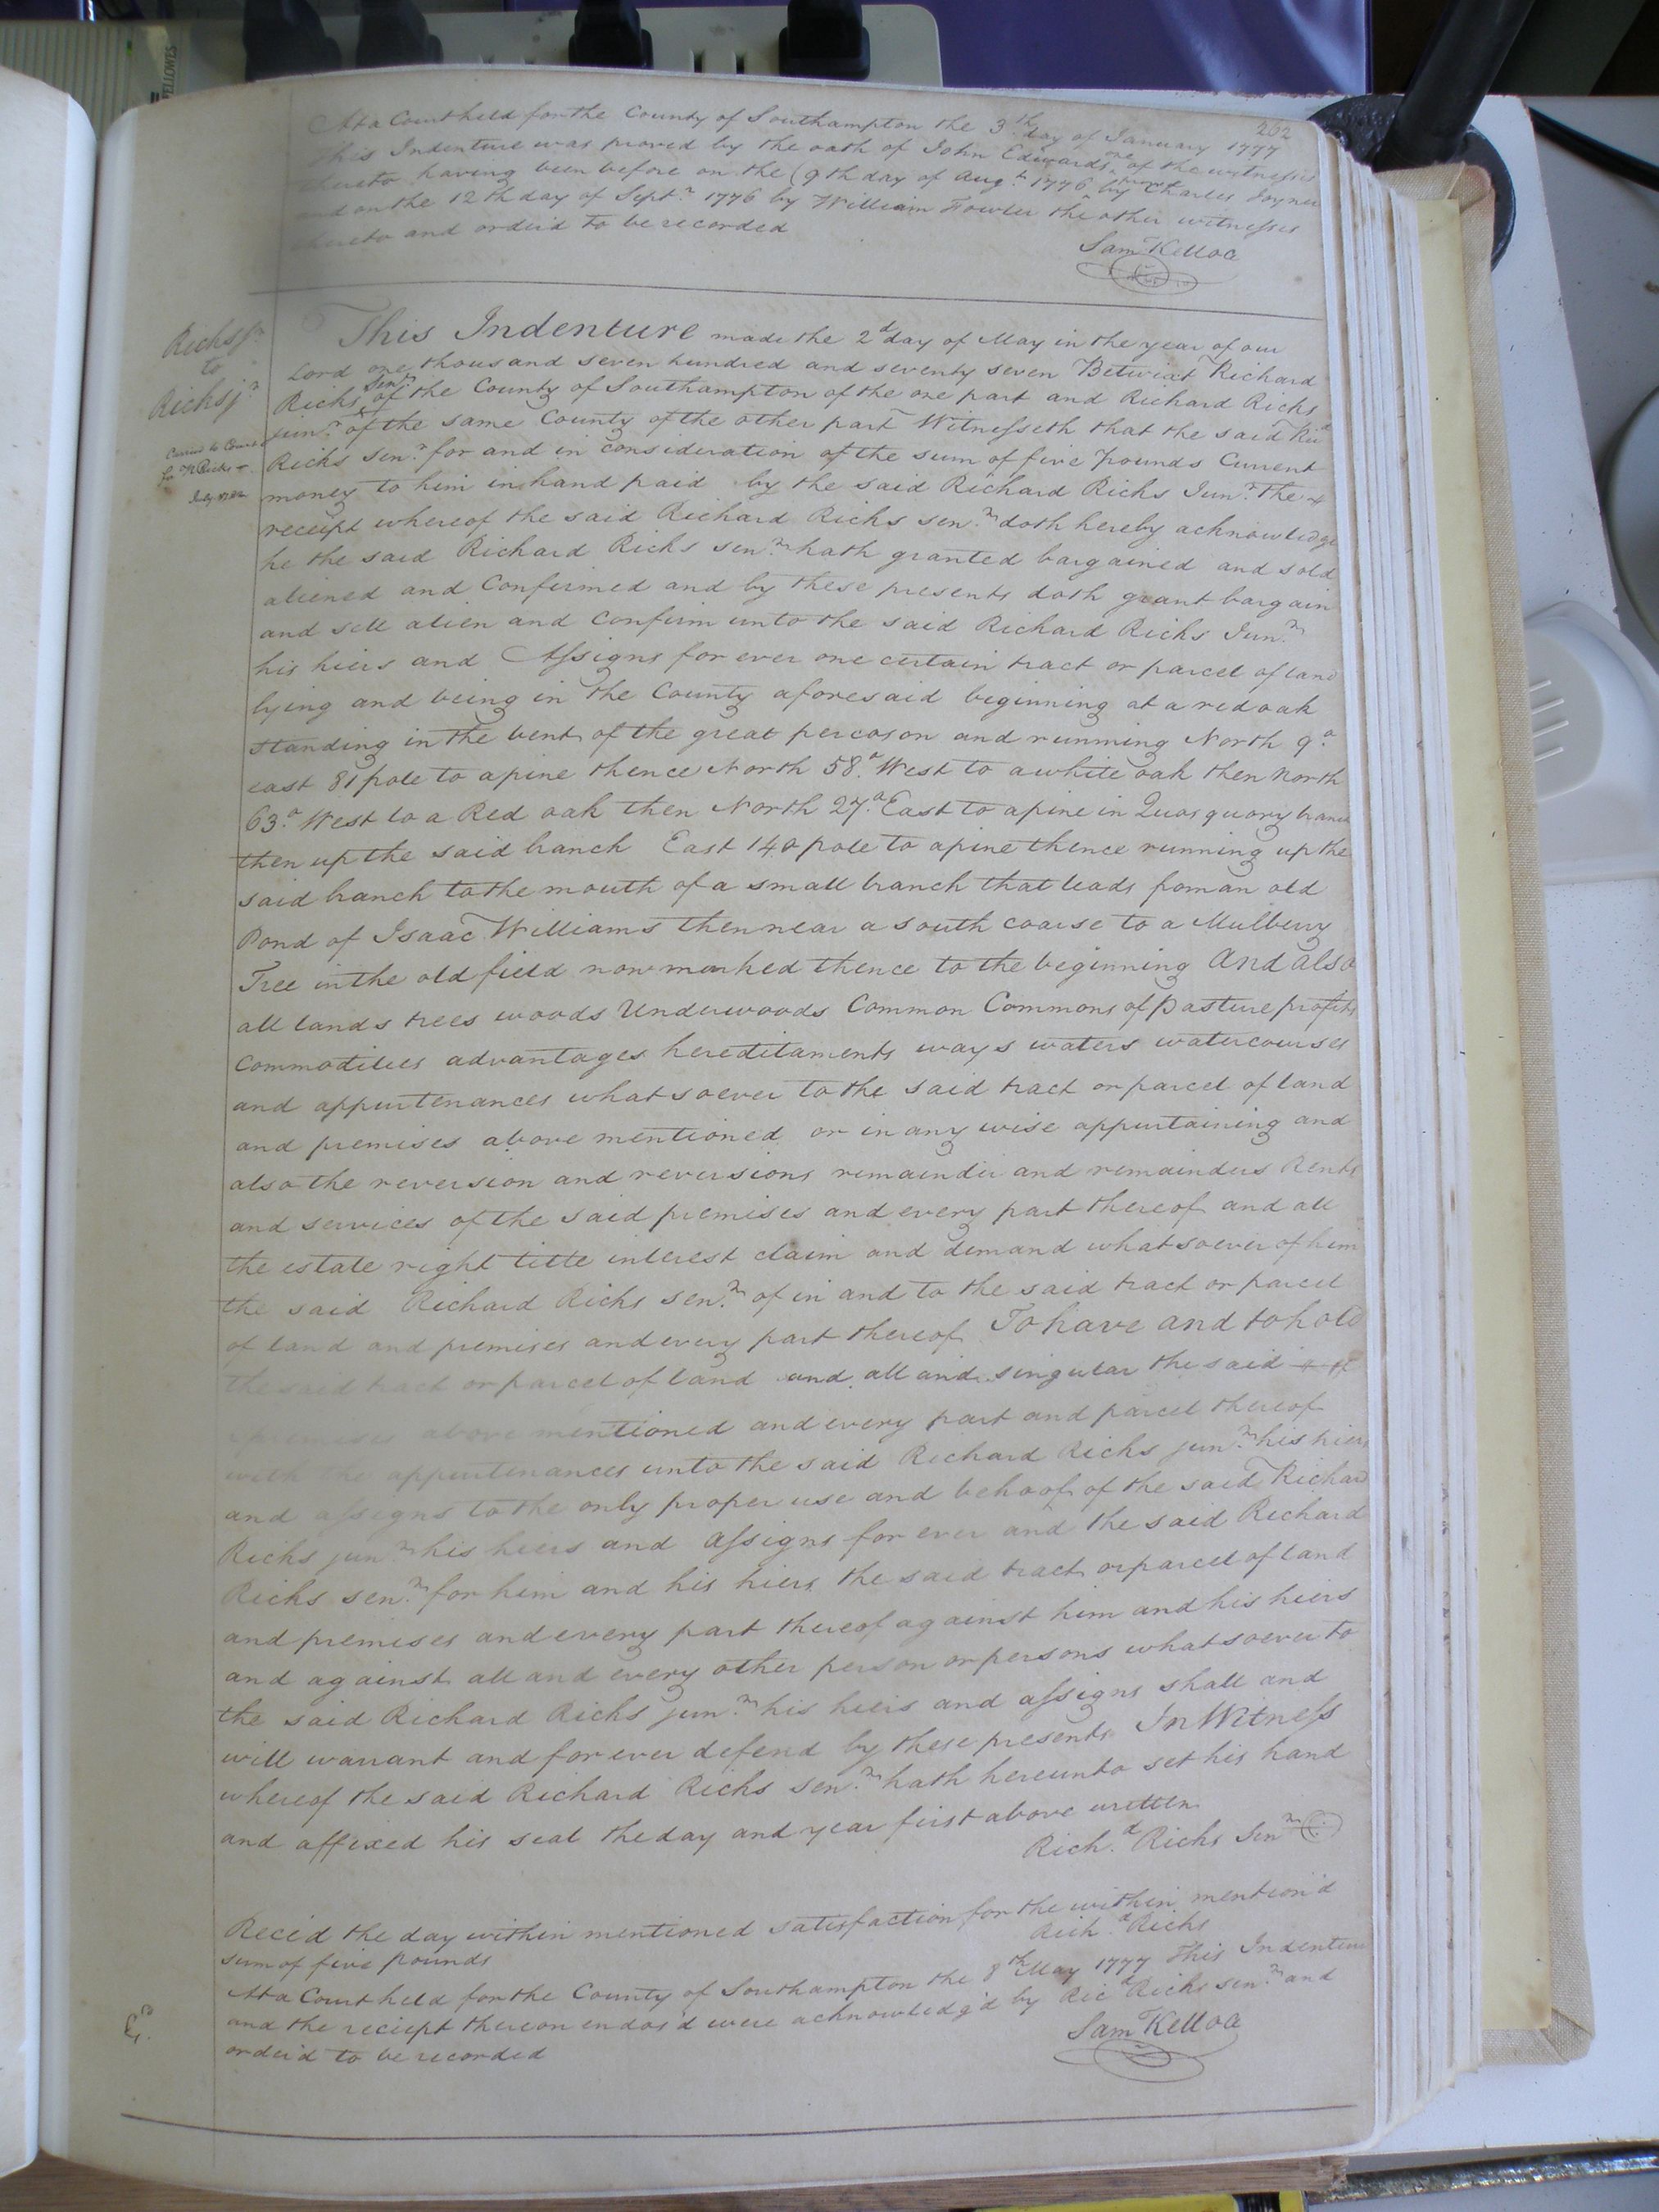 262
At a Court held for the County of Southampton the 3.th day of January 1777
This Indenture was proved by the oath of John Edwards one of the witnesses
thereto having been before on the (9th day of Aug.t 1776 by Charles Joyner
and on the 12th day of Sept.r 1776 by William Fowler the other witnesses
thereto and order'd to be recorded
Sam Kelloe
Ricks Sr
to
Ricks jr
Carried to Court
July
This Indenture made the 2d day of May in the year of our
Lord one thousand seven hundred and seventy seven Betwixt Richard
Ricks Senr. of the County of Southampton of the one part and Richard Ricks
junr. of the same County of the other part Witnesseth that the said Ricd
Ricks Sen.r for and in consideration of the sum of five pounds Current
money to him in hand paid by the said Richard Ricks Jun.r the
receipt whereof the said Richard Ricks sen.r doth hereby acknowledge
he the said Richard Ricks sen.r hath granted bargained and sold
aliened and Confirmed and by these presents doth grant bargain
and sell alien and Confirm unto the said Richard Ricks Jun.r
his hiers and Assigns for ever one certain tract or parcel of land
lying and being in the County aforesaid beginning at a red oak
standing in the bent of the great percoson and running North 9.o
east 81 pole to a pine thence North 58.o West to a white oak then North
63.o West to a Red oak then North 27.o East to a pine in Quasquory branch
then up the said branch East 140 pole to a pine thence running up the
said branch to the mouth of a small branch that leads from an old
Pond of Isaac Williams then near a south coarse to a Mulberry
Tree in the old field now marked thence to the beginning And also
all lands trees woods Underwoods Common Commons of pasture profits
Commodities advantages hereditaments ways waters watercourses
and appurtenances whatsoever to the said tract or parcel of land
and premises above mentioned or in any wise appurtaining and
also the reversion and reversions remainder and remainders Rents
and services of the said premises and every part thereof and all
the estate right title interest claim and demand whatsoever of him
the said Richard Ricks sen.r of in and to the said tract or parcel
of land and premises and every part thereof To have and to hold
the said tract or parcel of land and all and singular the said
premises above mentioned and every part and parcel thereof
with the appurtenances unto the said Richard Ricks jun.r his hiers
and assigns to the only proper use and behoof of the said Richard
Ricks jun.r his hiers and assigns for ever and the said Richard
Ricks sen.r for him and his hiers the said tract or parcel of land
and premises and every part thereof against him and his hiers
and against all and every other person or persons whatsoever to
the said Richard Ricks jun.r his hiers and assigns shall and
will warrant and for ever defend by these presents In Witness
whereof the said Richard Ricks sen.r hath hereunto set his hand
and affixed his seal the day and year first above written
Rich.d Ricks Senr
Reced the day within mentioned satisfaction for the within mention'd
sum of five pounds
Rich.d Ricks
At a Court held for the County of Southampton the 8th May 1777 This Indenture
and the reciept thereon endos'd were acknowledg'd by Ricd Ricks sen.r and
order'd to be recorded
Sam Kelloe
FELLOWES